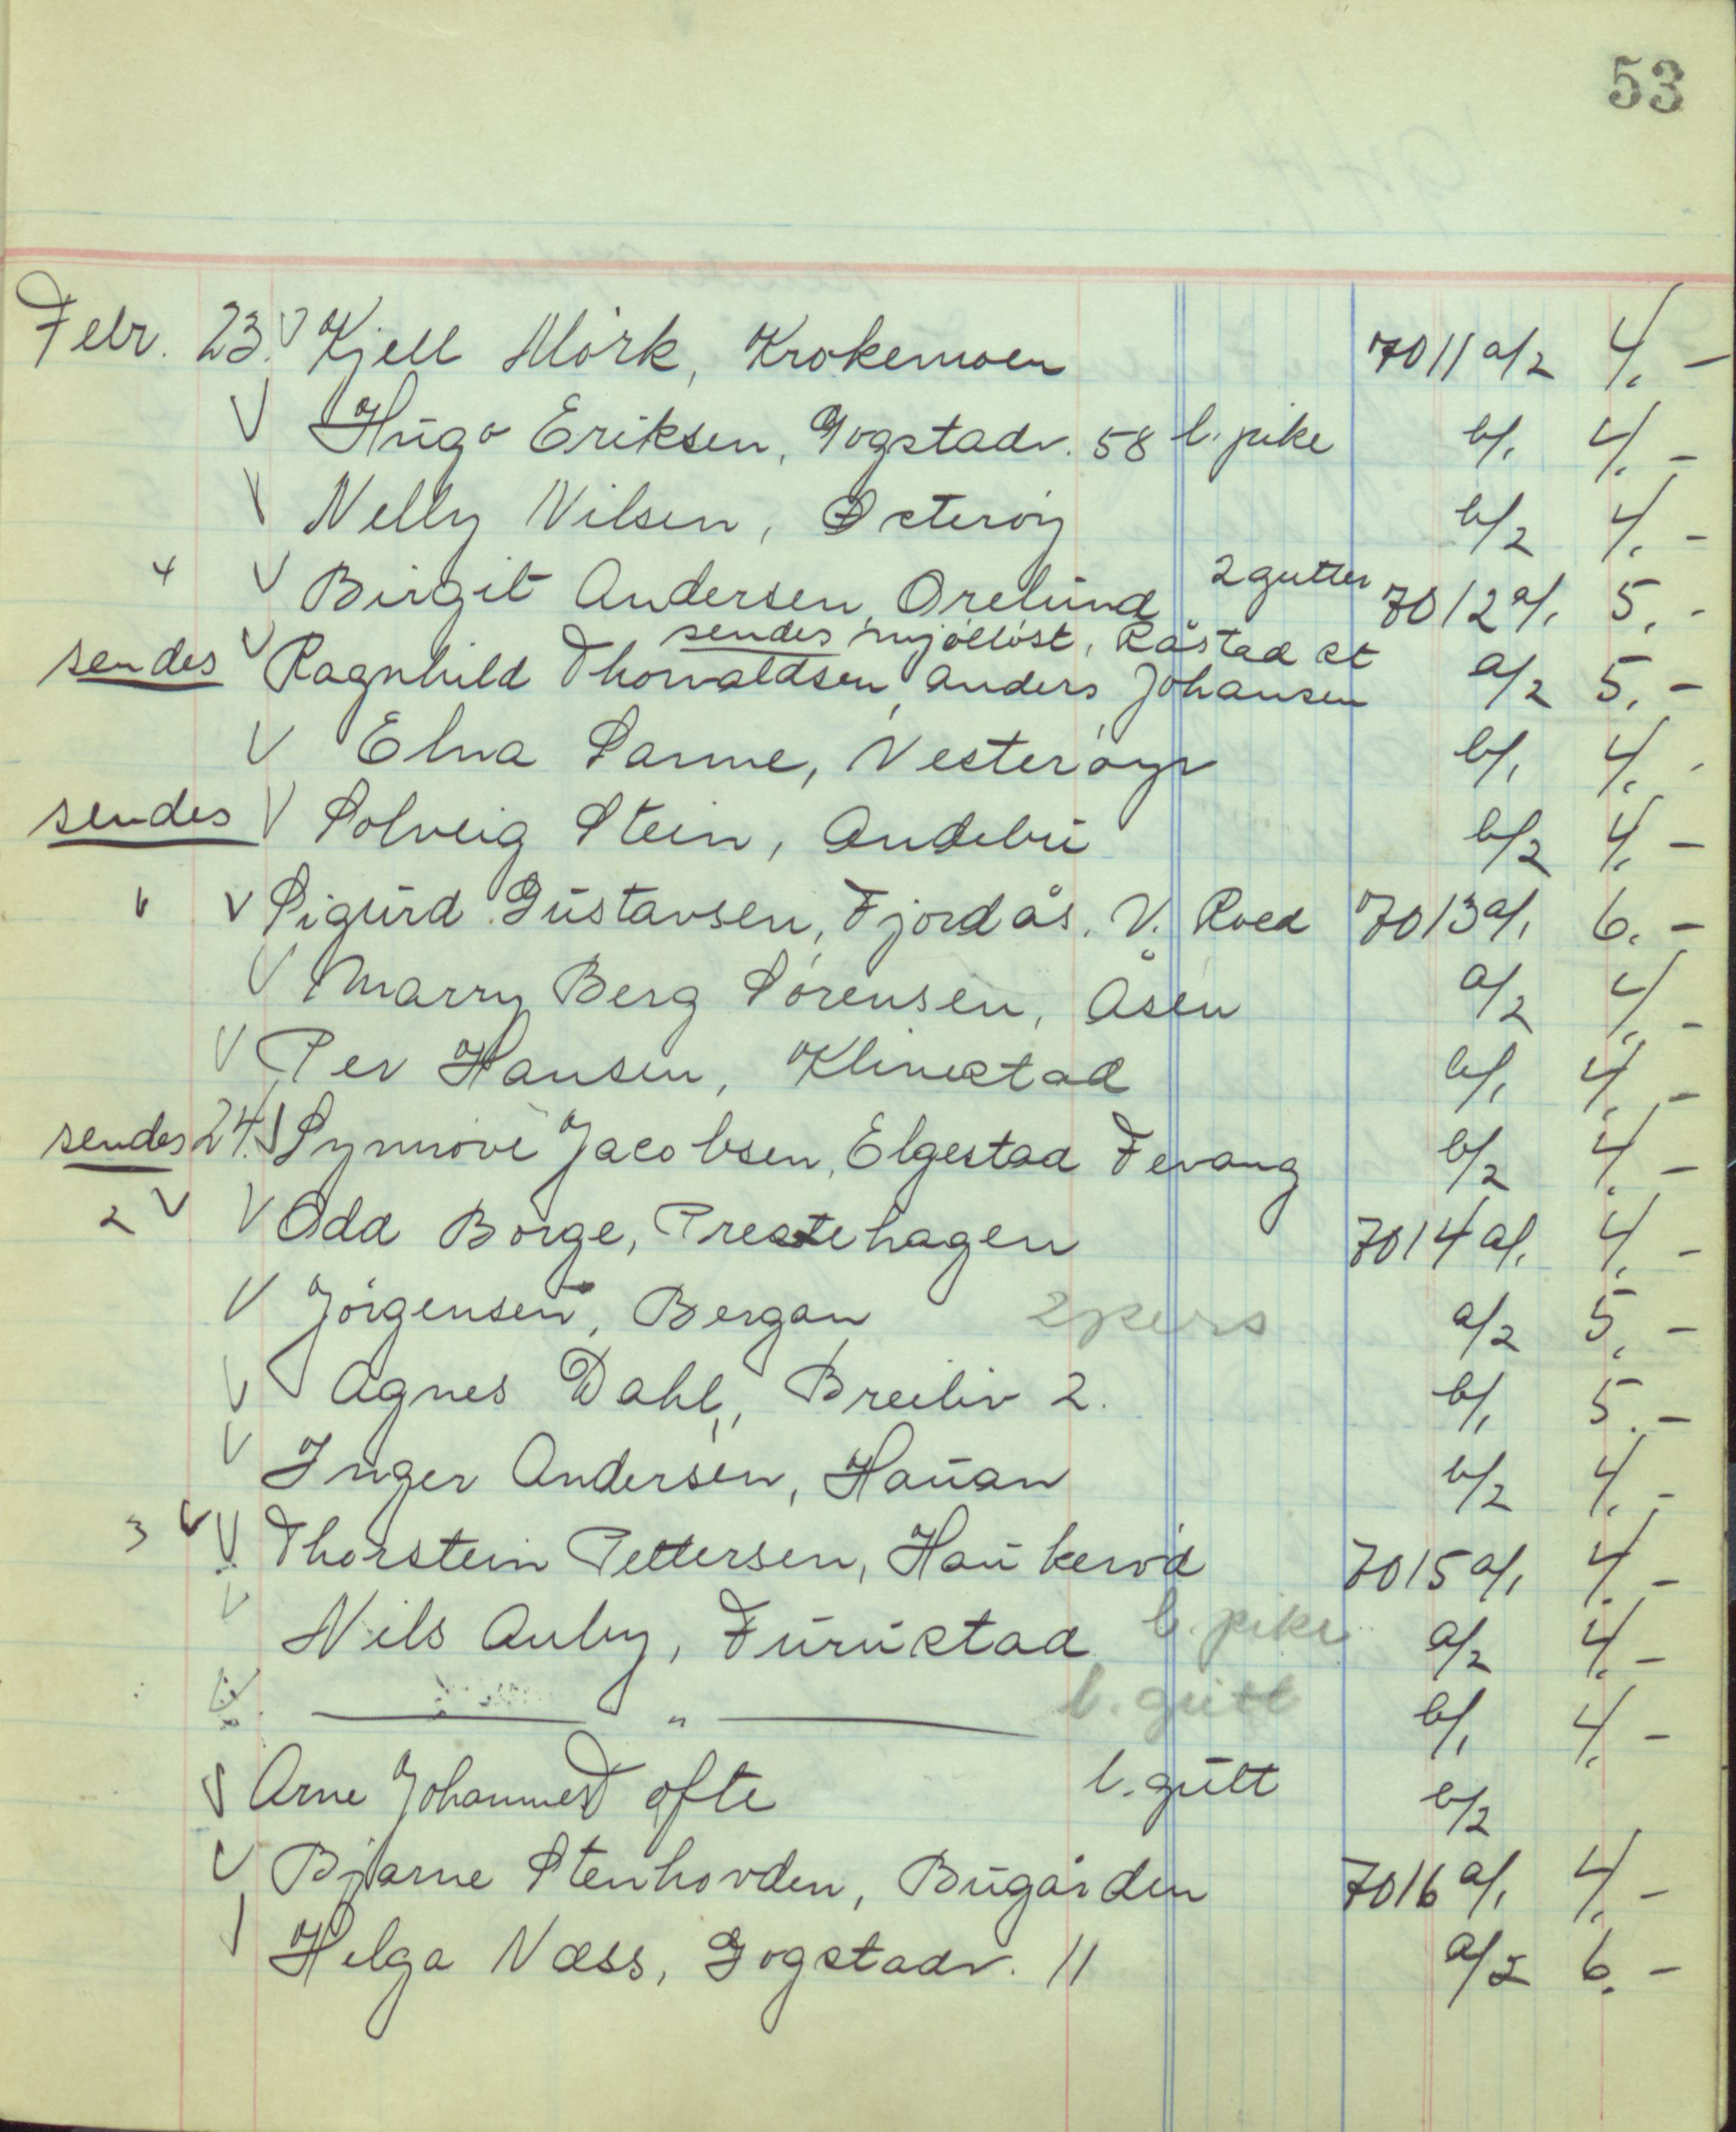 53
Febr. 23. V Kjell Mörk, Krokemoen 7011 a/2 4. -
V Hugo Eriksen, Gogstadv. 58 l. pike b/1 4. -
V Nelly Nilsen, Østerøy b/2 4. -
4 V Birgit Andersen, Orelund 2 gutter 7012 a/1 5. -
sendes mjöllöst, Råstad st
sendes V Ragnhild Thorvaldsen, Anders Johansen a/2 5. -
V Elna Sanne, Vesterøyv b/1 4. -
sendes V Solveig Stein, Andebu b/2 4. -
6 V Sigurd Gustavsen, Fjordås, V. Roed 7013 a/1 6. -
V Marry Berg Sörensen, Åsen a/2 4. -
V Per Hansen, Klinestad b/1 4. -
sendes 24. V Synnöve Jacobsen, Elgestad Fevang b/2 4. -
2 V V Odd Borge, Prestehagen 7014 a/1 4. -
V Jörgensen, Bergan 2 pers a/2 5. -
V Agnes Dahl, Breiliv 2. b/1 5. -
V Inger Andersen, Hauan b/2 4. -
3 V V Thorstein Pettersen, Haukeröd 7015 a/1 4. -
V Nils Auby, Furustad l. pike a/2 4. -
V — " — l. gutt b/1 4. -
V Arne Johannes Tofte l. gutt b/2
V Bjarne Stenhovden, Bugården 7016 a/1 4. -
V Helga Næss, Gogstadv. 11 a/2 6. -